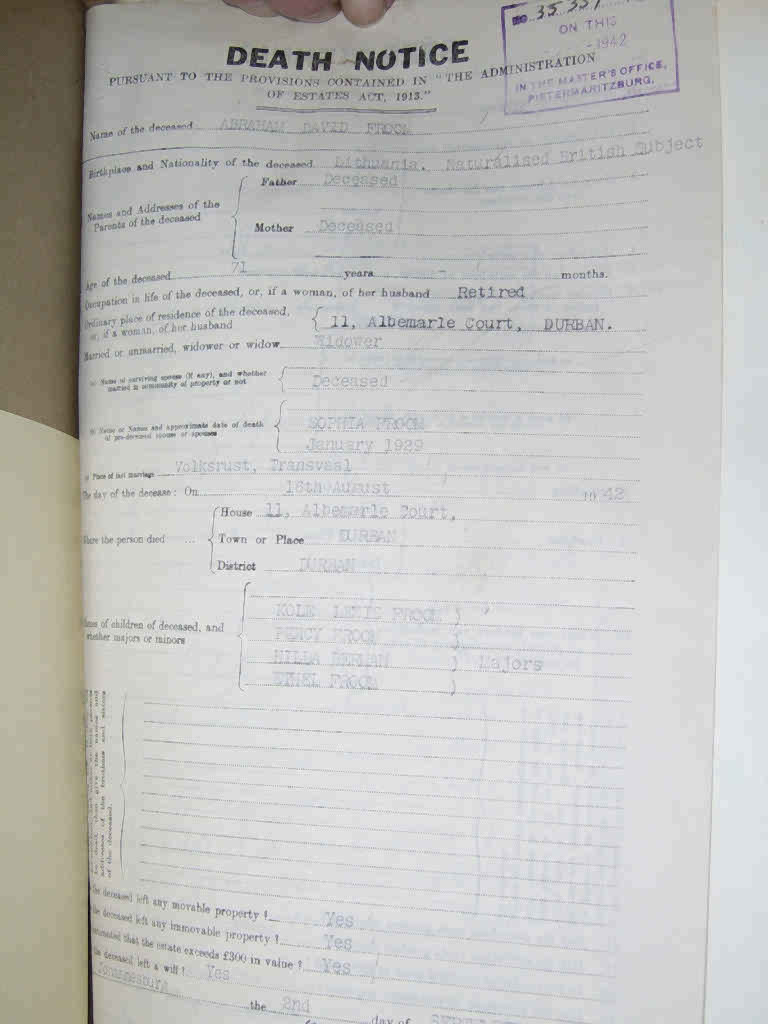 NO. 35351
ON THIS
-1942
IN THE MASTER'S OFFICE,
PIETERMARITZBURG.
DEATH NOTICE
PURSUANT TO THE PROVISIONS CONTAINED IN "THE ADMINISTRATION
OF ESTATES ACT, 1913."
Name of the deceased ABRAHAM DAVID FROOM
Birthplace and Nationality of the deceased Lithuania. Naturalised British Subject
Names and Addresses of the Parents of the deceased
Father Deceased
Mother Deceased
Age of the deceased 71 years - months.
Occupation in life of the deceased, or, if a woman, of her husband Retired
Ordinary place of residence of the deceased, or, if a woman, of her husband 11, Albemarle Court, DURBAN.
Married or unmarried, widower or widow Widower
(a) Name of surviving spouse (if any), and whether married in community of property or not Deceased
(b) Name or Names and approximate date of death of pre-deceased spouse or spouses
SOPHIA FROOM
January 1929
(c) Place of last marriage Volksrust, Transvaal
The day of the decease: On 16th August 1942
Where the person died ...
House 11, Albemarle Court,
Town or Place DURBAN
District DURBAN
Names of children of deceased, and whether majors or minors
LEWIS FROOM )
PERCY FROOM )
HILDA BERMAN ) Majors
FROOM )
to be dead, then give the names and
addresses of the brothers and sisters
of the deceased.
the deceased left any movable property? Yes
the deceased left any immovable property? Yes
estimated that the estate exceeds £300 in value? Yes
the deceased left a will? Yes
Johannesburg the 2nd day of